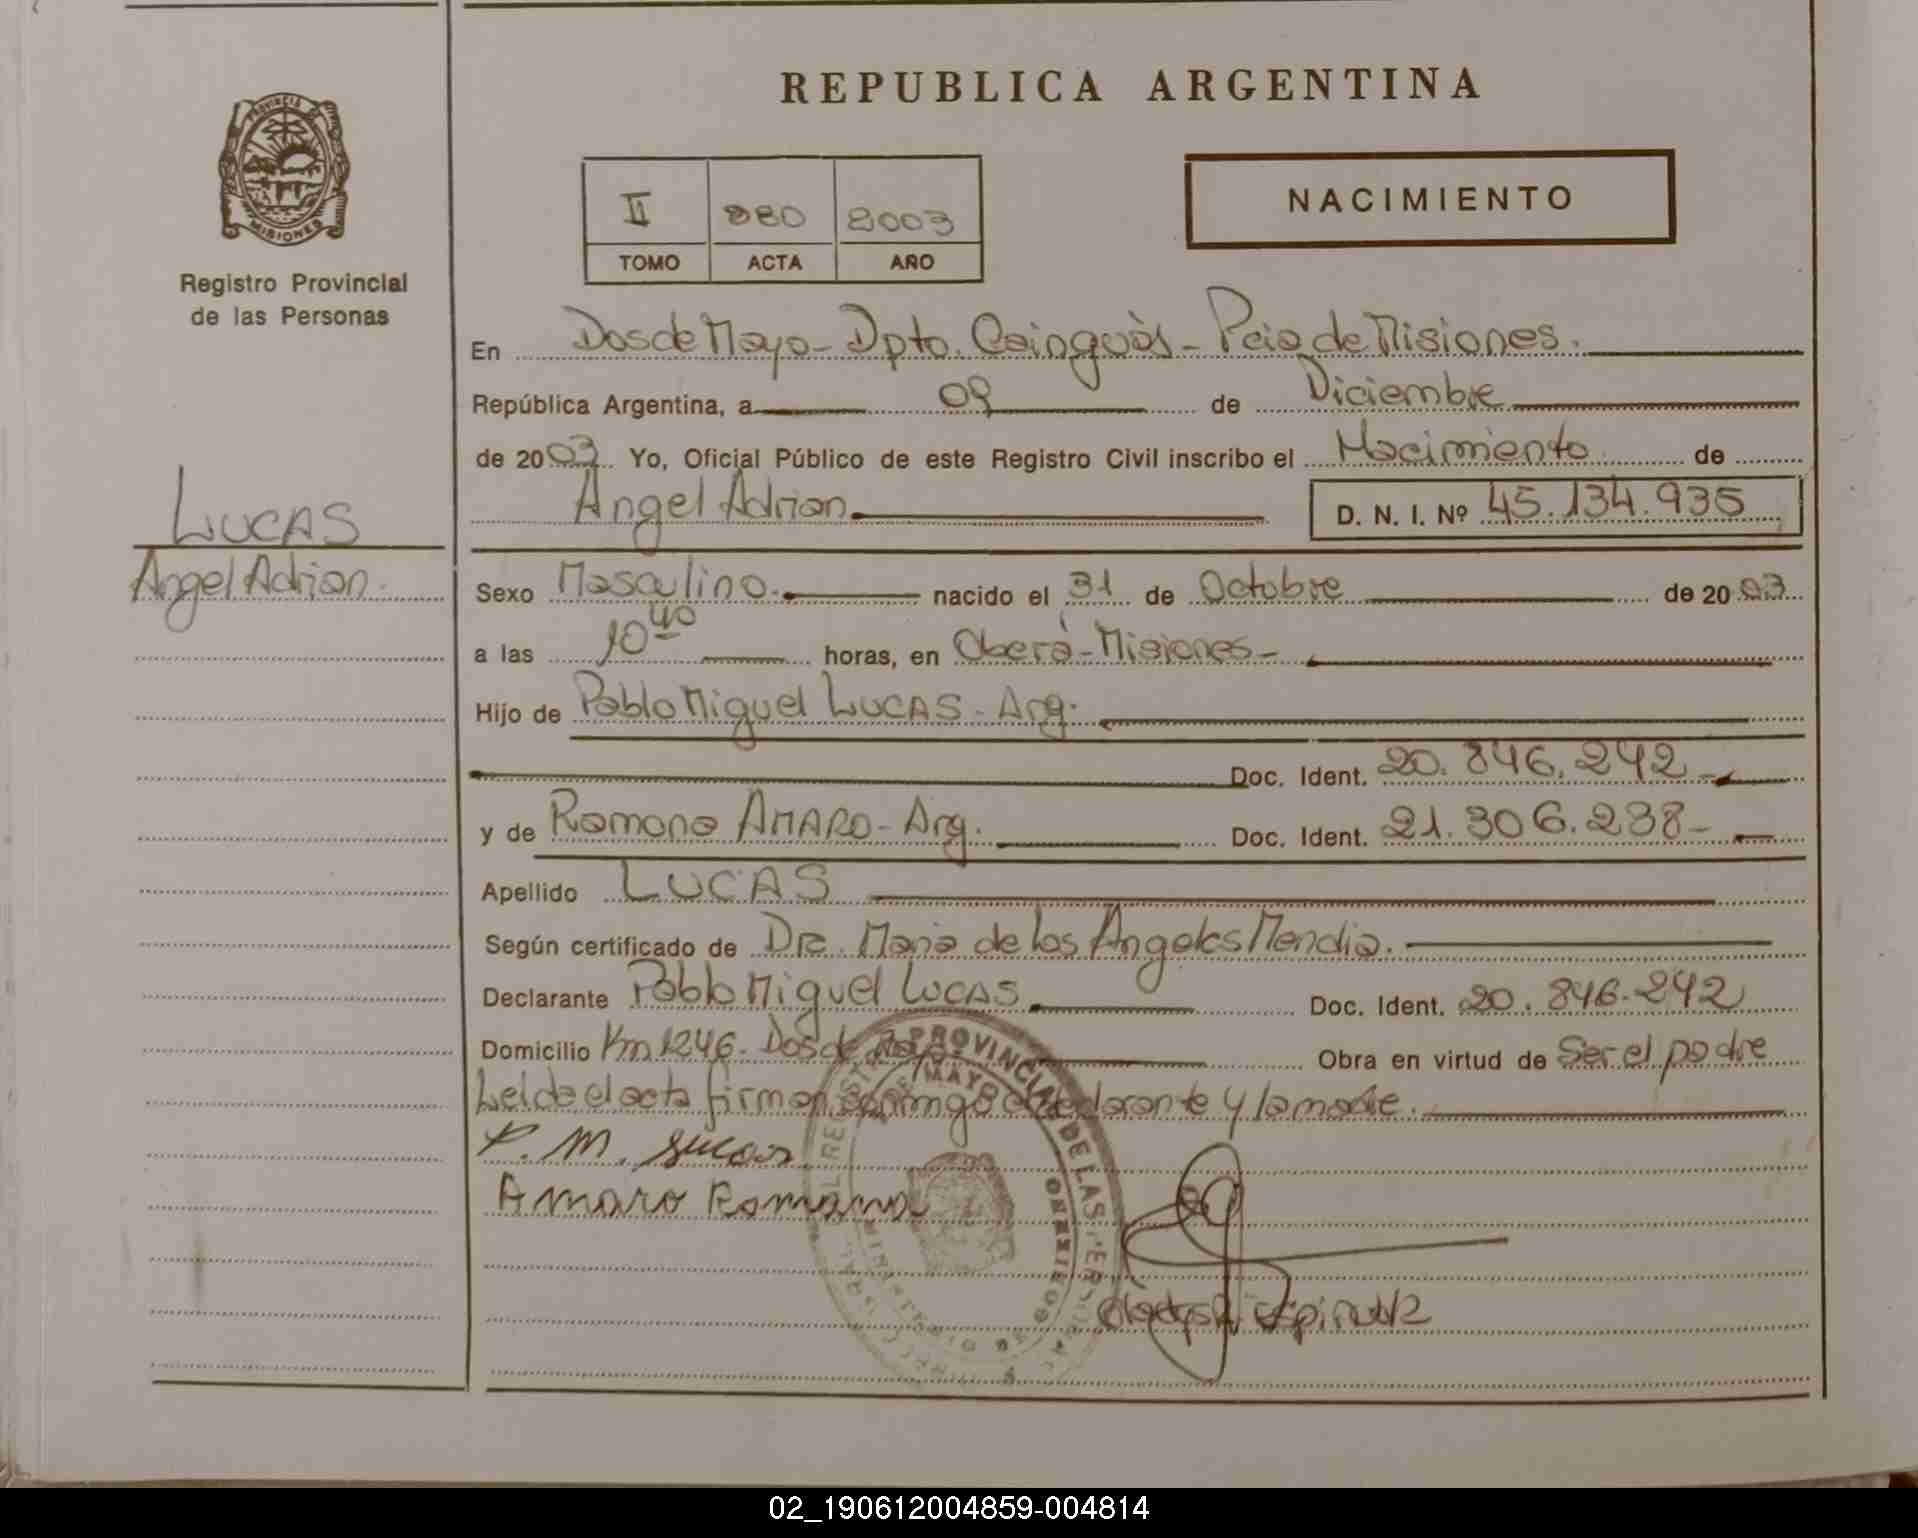 REPUBLICA ARGENTINA
PROVINCIA
MISIONES
Registro Provincial
de las Personas
NACIMIENTO
II 2003
TOMO ACTA AÑO
En Dos de Mayo - Dpto. Cainguás - Pcia de Misiones.
República Argentina, a 09 de Diciembre
de 2003 Yo, Oficial Público de este Registro Civil inscribo el Nacimiento de
Angel Adrian D. N. I. Nº 45.134.935
LUCAS
Angel Adrian.
Sexo Masculino. nacido el 31 de Octubre de 2003
a las 10 40 horas, en Oberá - Misiones -
Hijo de Pablo Miguel LUCAS - Arg.
Doc. Ident. 20.846.242 -
y de Ramona AMARO - Arg. Doc. Ident. 21.306.238 -
Apellido LUCAS
Según certificado de Dra. Maria de los Angeles Mendia.
Declarante Pablo Miguel LUCAS Doc. Ident. 20.846.242
Domicilio Km 1246 - Dos de Mayo. Obra en virtud de Ser el padre
Leida el acta firman conmigo el declarante y la madre.
P. M. Lucas
Amaro Ramona
PROVINCIAL DE LAS
MAYO
MINISTERIO DE GOBIERNO
02_190612004859-004814